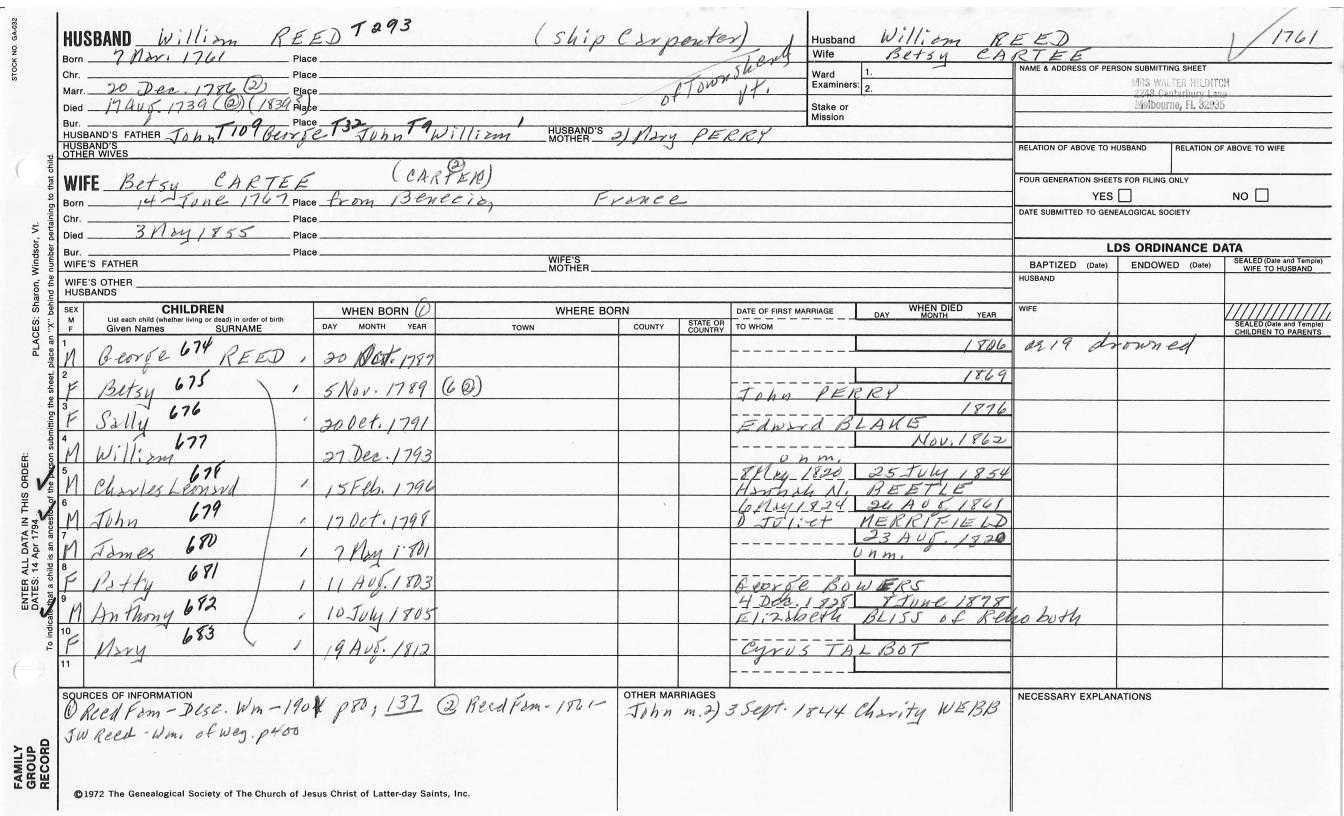 STOCK NO. GA-032
HUSBAND William REED T293 (Ship Carpenter)
Born 7 Mar. 1761 Place
Chr. Place
Marr. 20 Dec. 1786 (2) Place of Townshend Vt.
Died 17 Aug. 1739 (2) (1839) Place
Bur. Place
HUSBAND'S FATHER John T109 George T32 John T9 William 1 HUSBAND'S MOTHER 2) Mary PERRY
HUSBAND'S OTHER WIVES
Husband William REED 1761
Wife Betsy CARTEE
Ward Examiners: 1.
2.
Stake or Mission
NAME & ADDRESS OF PERSON SUBMITTING SHEET
MRS WALTER HILDITCH
2748 Canterbury Lane
Melbourne, FL 32935
RELATION OF ABOVE TO HUSBAND RELATION OF ABOVE TO WIFE
FOUR GENERATION SHEETS FOR FILING ONLY
YES NO
DATE SUBMITTED TO GENEALOGICAL SOCIETY
WIFE Betsy CARTEE (CARTER) (2)
Born 14 June 1767 Place from Benecia, France
Chr. Place
Died 3 May 1855 Place
Bur. Place
WIFE'S FATHER WIFE'S MOTHER
WIFE'S OTHER HUSBANDS
LDS ORDINANCE DATA
BAPTIZED (Date) ENDOWED (Date) SEALED (Date and Temple) WIFE TO HUSBAND
HUSBAND
WIFE
SEALED (Date and Temple) CHILDREN TO PARENTS
SEX M F CHILDREN WHEN BORN (1) WHERE BORN DATE OF FIRST MARRIAGE WHEN DIED
List each child (whether living or dead) in order of birth
Given Names SURNAME DAY MONTH YEAR TOWN COUNTY STATE OR COUNTRY TO WHOM DAY MONTH YEAR
1 M George 674 REED 20 Oct. 1787 1806 ae 19 drowned
2 F Betsy 675 5 Nov. 1789 (6 (2)) 1869
John PERRY
3 F Sally 676 20 Oct. 1791 1876
Edward BLAKE
4 M William 677 27 Dec. 1793 Nov. 1862
unm.
5 M Charles Leonard 678 15 Feb. 1796 8 May 1820 25 July 1854
Hannah N. BEETLE
6 M John 679 17 Oct. 1798 6 May 1824 26 Aug. 1861
D Juliet MERRIFIELD
7 M James 680 7 May 1801 23 Aug. 1820
unm.
8 F Patty 681 11 Aug. 1803
George BOWERS
9 M Anthony 682 10 July 1805 4 Dec. 1828 8 June 1878
Elizabeth BLISS of Rehoboth
10 F Mary 683 19 Aug. 1812
Cyrus TALBOT
11
SOURCES OF INFORMATION
(1) Reed Fam - Desc. Wm - 1901 p80; 137 (2) Reed Fam - 1861-
JW Reed - Wm. of Wey. p400
OTHER MARRIAGES
John m. 2) 3 Sept. 1844 Charity WEBB
NECESSARY EXPLANATIONS
©1972 The Genealogical Society of The Church of Jesus Christ of Latter-day Saints, Inc.
FAMILY GROUP RECORD
ENTER ALL DATA IN THIS ORDER:
DATES: 14 Apr 1794
PLACES: Sharon, Windsor, Vt.
To indicate that a child is an ancestor of the person submitting the sheet, place an "X" behind the number pertaining to that child.